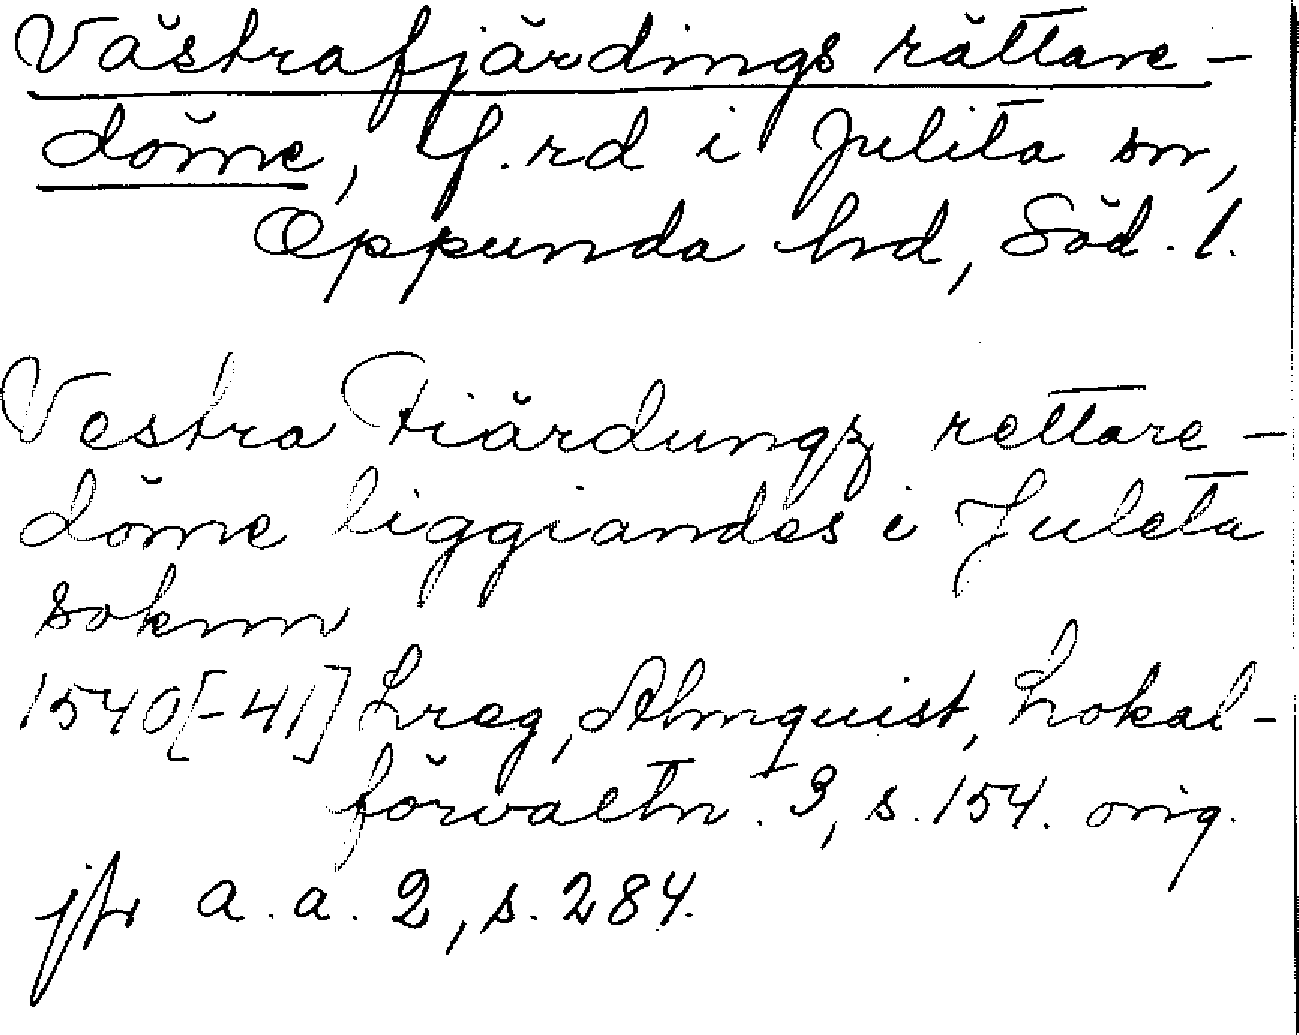 Västrafjärdings rättare-
döme, f.rd i Julita sn,
Oppunda hd, Söd. l.
Vestra Fiärdungz rettare-
döme liggiandes i Juleta
soknn
1540[-41] Lreg, Almquist, Lokal-
förvaltn. 3, s. 154. orig.
jfr a. a. 2, s. 284.